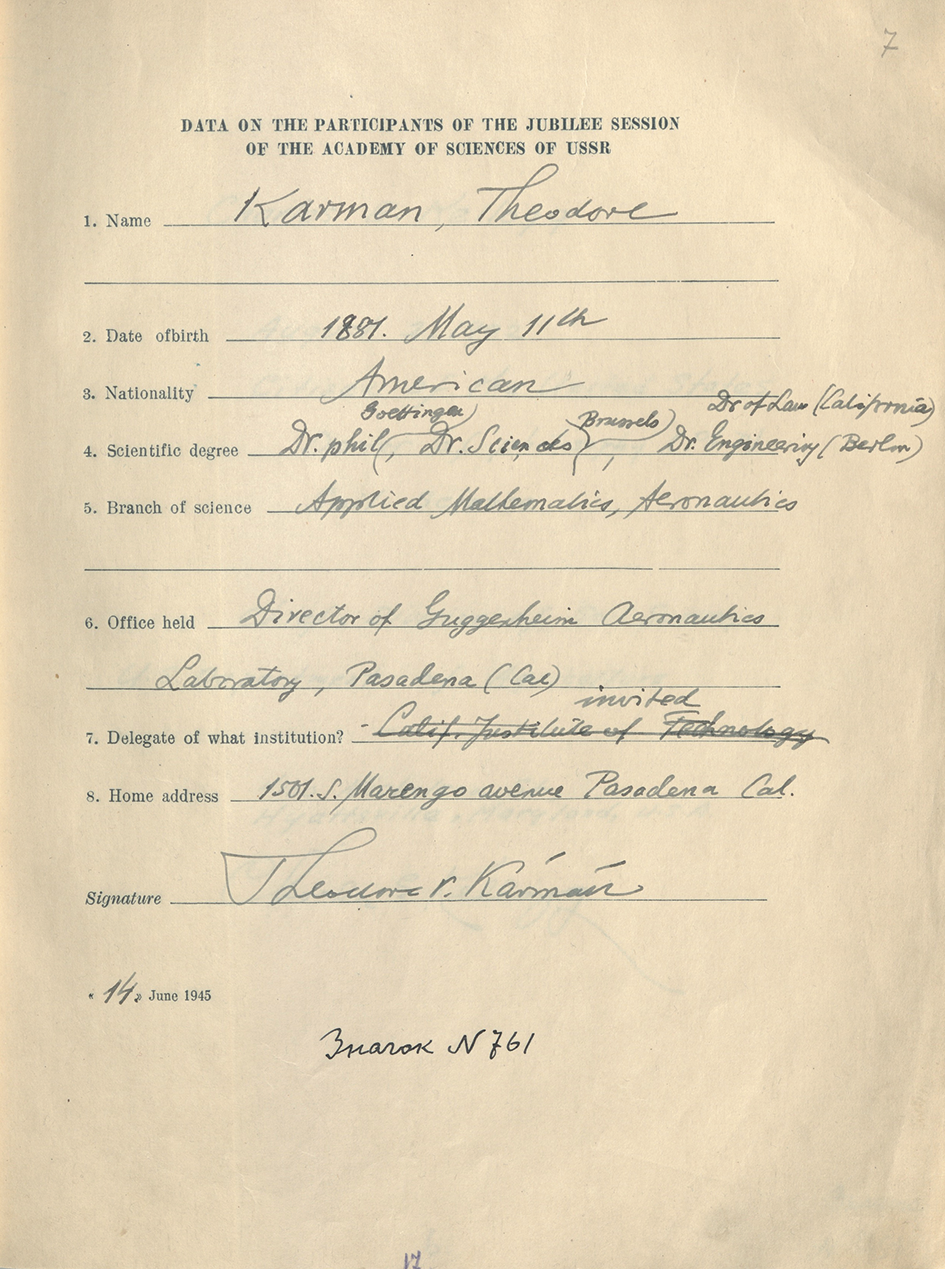 7
DATA ON THE PARTICIPANTS OF THE JUBILEE SESSION
OF THE ACADEMY OF SCIENCES OF USSR
1. Name Karman, Theodore
2. Date ofbirth 1881. May 11th
3. Nationality American
Goettingen) Brussels) Dr of Law (California)
4. Scientific degree Dr. phil(, Dr. Sciences (, Dr. Engineering (Berlin)
5. Branch of science Applied Mathematics, Aeronautics
6. Office held Director of Guggenheim Aeronautics
Laboratory, Pasadena (Cal)
invited
7. Delegate of what institution? - Calif. Institute of Technology
8. Home address 1501. S. Marengo avenue Pasadena Cal.
Signature Theodore v. Kármán
« 14 » June 1945
Значок N 761
17